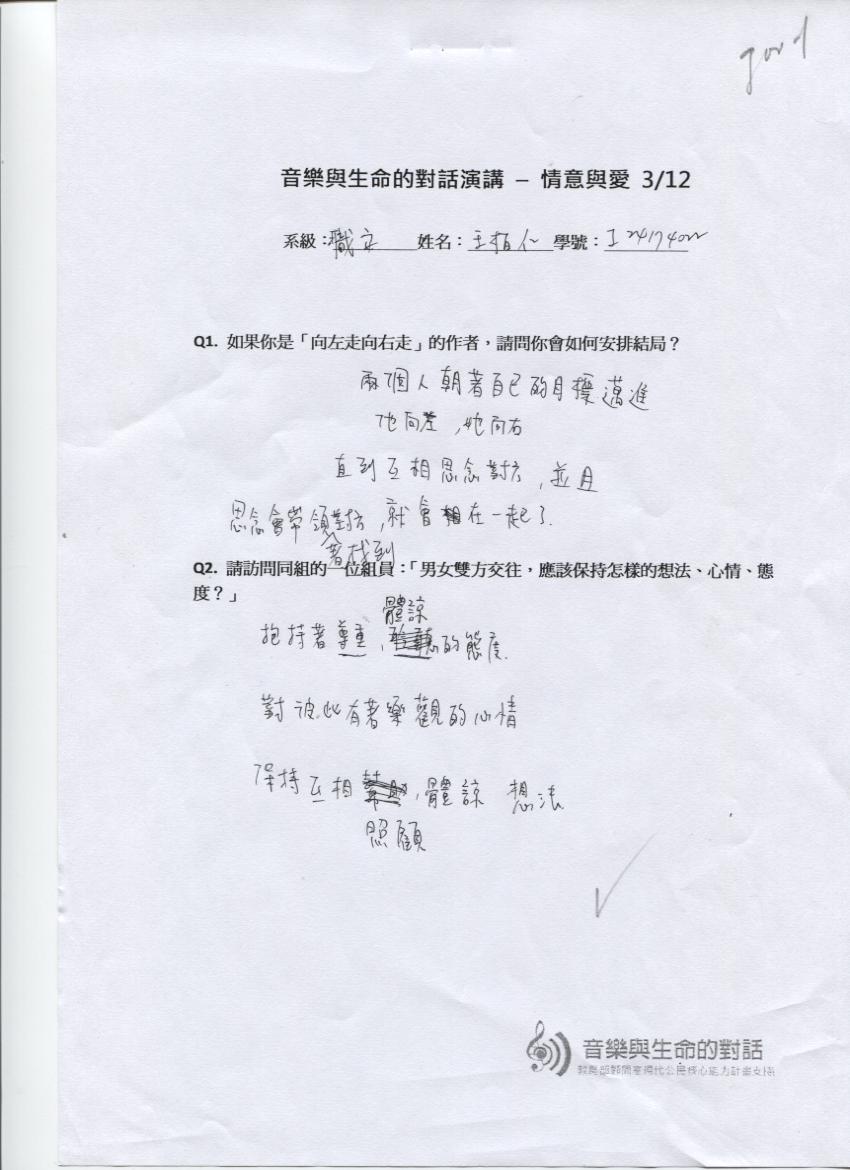 good
音樂與生命的對話演講 – 情意與愛 3/12
系級：職 姓名：王栢仁 學號：I24174022
Q1. 如果你是「向左走向右走」的作者，請問你會如何安排結局？
兩個人朝著自己的目標邁進
他向左，她向右
直到互相思念對方，並且
思念會帶領著找到對方，就會相在一起了.
Q2. 請訪問同組的一位組員：「男女雙方交往，應該保持怎樣的想法、心情、態
度？」
抱持著尊重，體諒的態度.
對彼此有著樂觀的心情
保持互相照顧，體諒 想法
音樂與生命的對話
教育部顧問室現代公民核心能力計畫支持